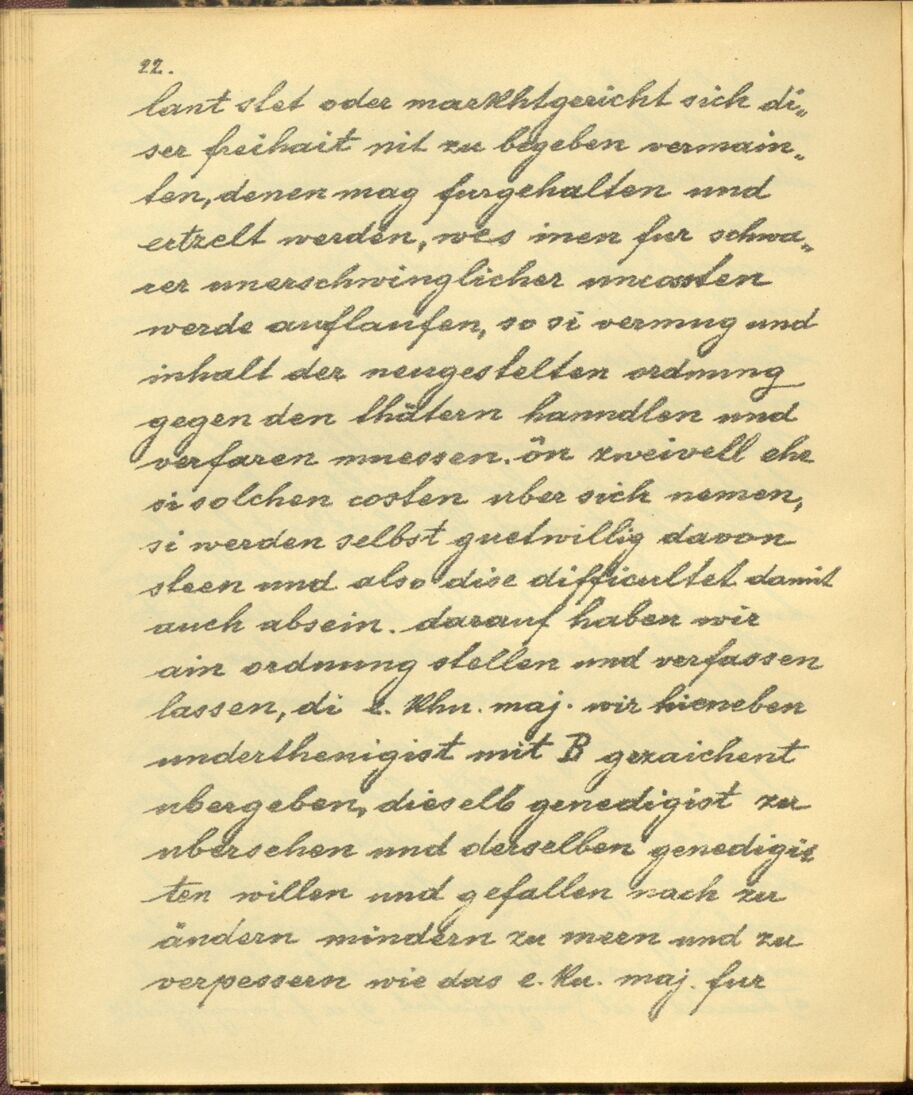 22.
lant stet oder markhtgericht sich di„
ser freihait nit zu begeben vermain„
ten, denen mag furgehalten und
ertzelt werden, wes inen fur schwa„
rer unerschwinglicher uncossten
werde auflaufen, so si vermug und
inhalt der neugestelten ordnung
gegen den thätern hanndlen und
verfaren muessen. ôn zweivell ehe
si solchen costen uber sich nemen,
si werden selbst guetwillig davon
steen und also dise difficultet damit
auch absein. darauf haben wir
ain ordnung stellen und verfassen
lassen, di e. khu. maj. wir hieneben
underthenigist mit B gezaichent
ubergeben, dieselb genedigist zu
ubersehen und derselben genedigis
ten willen und gefallen nach zu
ändern mindern zu meen und zu
verpessern wie das e. ku. maj. fur